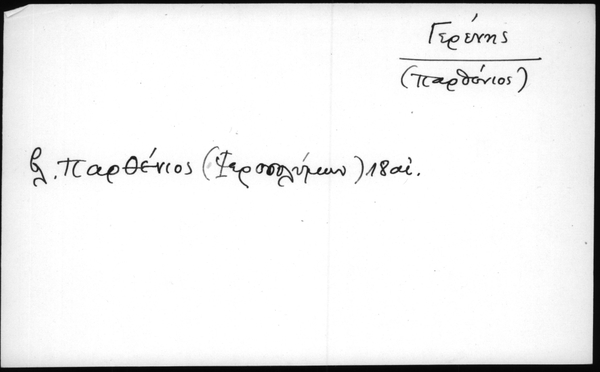 Γερένης
(Παρθένιος)
βλ. Παρθένιος (Ἱεροσολύμων) 18 αἰ.